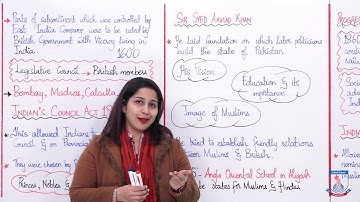 Parts of subcontinent which were controlled by
East India Company were to be ruled by
British Government with Viceroy living in
India
1600
Legislative Council → British members
Bombay, Madras, Calcutta
INDIAN'S COUNCIL ACT
This allowed Indians to
Council & on Provincial
They were chosen by
Princes, Nobles &
SIR SYED AHMAD KHAN
He laid foundation on which later politicians
build the state of Pakistan
His Vision
Education & its
importance
Image of Muslims
tried to establish friendly relations
between Muslims & British.
Anglo Oriental School in Aligarh
States for Muslims & Hindus
PROGRESS
1860